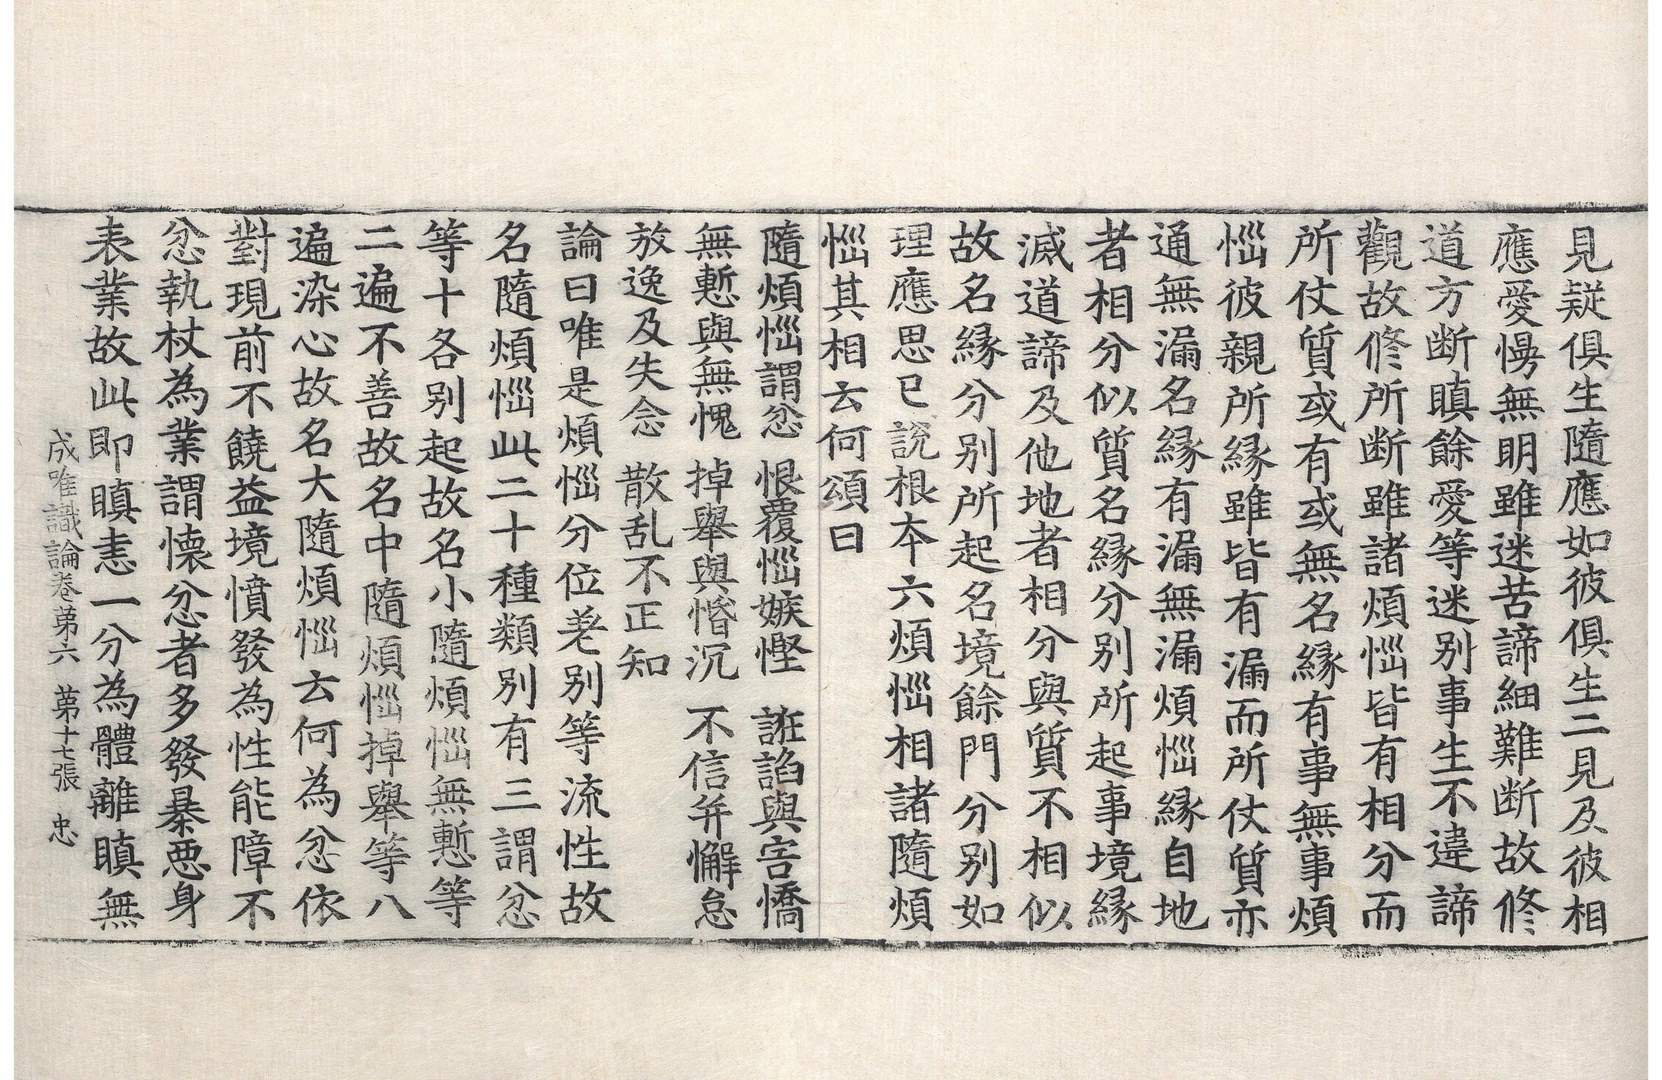 見疑俱生隨應如彼俱生二見及彼相
應愛慢無明雖迷苦諦細難断故修
道方断瞋餘愛等迷别事生不違諦
觀故修所断雖諸煩惱皆有相分而
所仗質或有或無名緣有事無事煩
惱彼親所緣雖皆有漏而所仗質亦
通無漏名緣有漏無漏煩惱緣自地
者相分似質名緣分别所起事境緣
滅道諦及他地者相分與質不相似
故名緣分别所起名境餘門分别如
理應思已說根本六煩惱相諸隨煩
惱其相云何頌曰
隨煩惱謂忿 恨覆惱嫉慳 誑諂與害憍
無慙與無愧 掉舉與惛沉 不信并懈怠
放逸及失念 散乱不正知
論曰唯是煩惱分位差别等流性故
名隨煩惱此二十種類别有三謂忿
等十各别起故名小隨煩惱無慙等
二遍不善故名中隨煩惱掉舉等八
遍染心故名大隨煩惱云何為忿依
對現前不饒益境憤發為性能障不
忿執杖為業謂懷忿者多發暴惡身
表業故此即瞋恚一分為體離瞋無
成唯識論卷苐六 苐十七張 忠